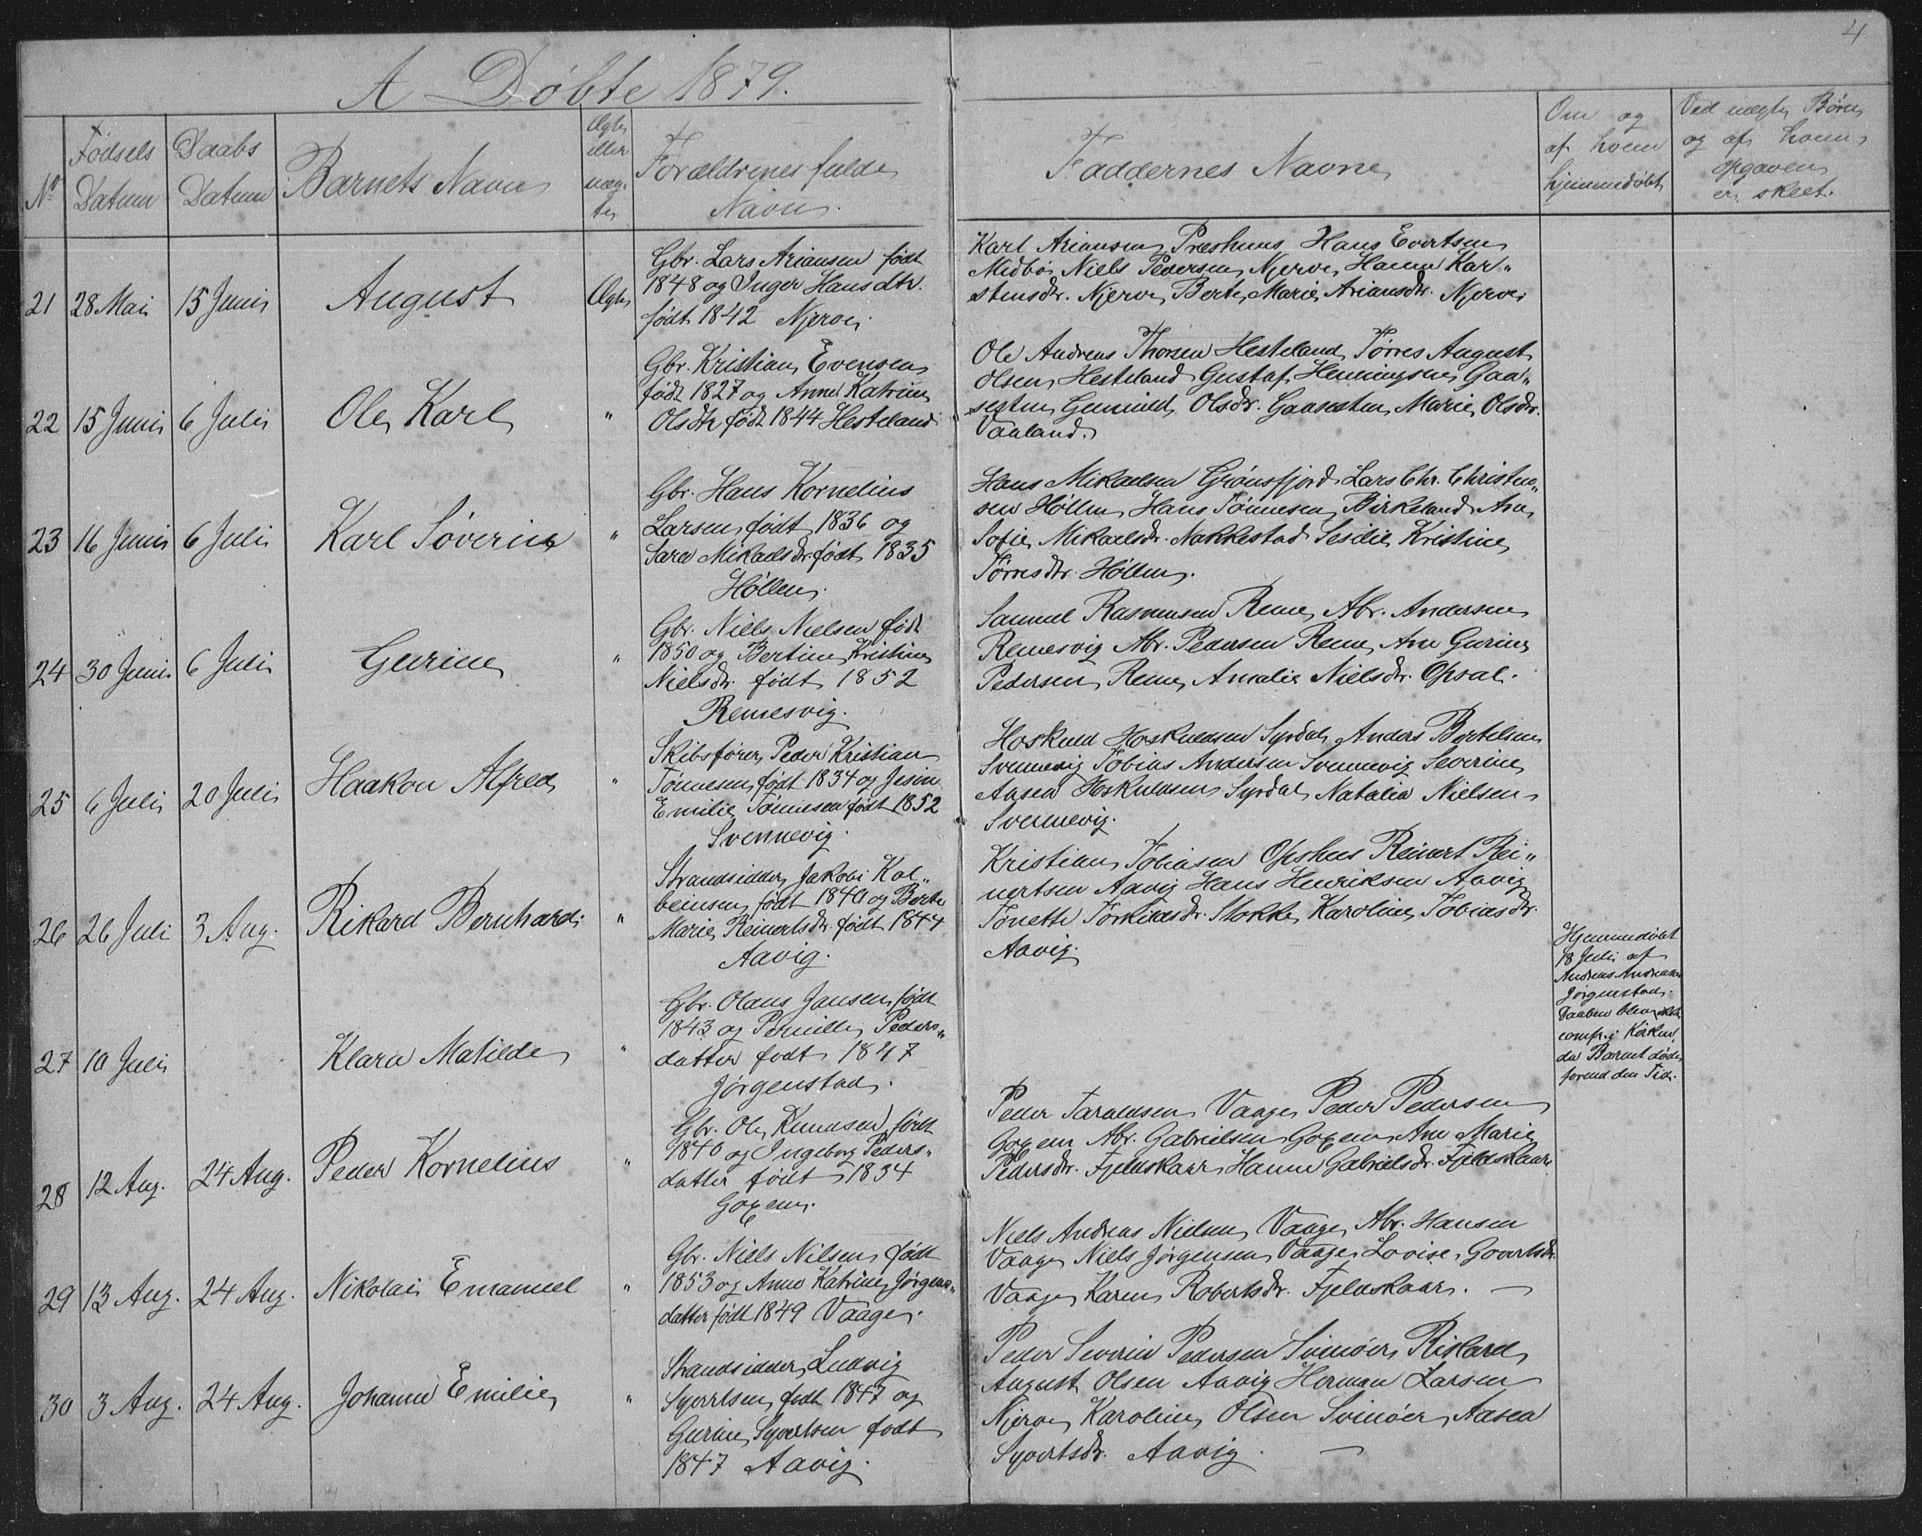 4
A Døbte 1879.
No
Fødsels
Datum
Daabs
Datum
Barnets Navn
Ægte
eller
uæg-
te
Forældrenes fulde
Navn.
Faddernes Navne
Om og
af hvem
hjemmedøbt
Ved uægte Børn
og af hvem
Opgaven
er skeet.
21 28 Mai 15 Juni August Ægte
Gbr. Lars Ariansen født
1848 og Inger Hansdtr.
født 1842 Njerve.
Karl Ariansen Præsthuus Hans Evertsen
Midbø Niels Pedersen Njerve Hanne Kar-
stensdr. Njerve Berte Marie Ariansdr. Njerve
22 15 Juni 6 Juli Ole Karl "
Gbr. Kristian Evensen
født 1827 og Anne Katrine
Olsdtr født 1844 Hesteland
Ole Andreas Thorsen Hesteland Tørres August
Olsen Hesteland Gustaf Henningsen Gaa-
sesten Gunnild Olsdr. Gaasesten Marie Olsdr.
Vaaland.
23 16 Juni 6 Juli Karl Søverin "
Gbr. Hans Kornelius
Larsen født 1836 og
Sara Mikaelsdr. født 1835
Høllen.
Hans Mikaelsen Grønsfjord Lars Chr. Christen-
sen Høllen Hans Tønnesen Birkeland Ane
Sofie Mikaelsdr. Nakkestad Sesilie Kristine
Tørresdr. Høllen.
24 30 Juni 6 Juli Gurine "
Gbr. Niels Nielsen født
1850 og Bertine Kristine
Nielsdr. født 1852
Remesvig.
Samuel Rasmusen Reme Abr. Andersen
Remesvig Abr. Pedersen Reme Ane Gurine
Pedersen Reme Amalie Nielsdr. Opsal.
25 6 Juli 20 Juli Haakon Alfred "
Skibsfører Peder Kristian
Tønnesen født 1834 og Jesine
Emilie Tønnesen født 1852
Svennevig.
Hoskuld Hoskuldsen Syrdal Anders Bertelsen
Svennevig Tobias Andersen Svennevig Severine
Aasen Hoskuldsen Syrdal Natalia Nielsen
Svennevig.
26 26 Juli 3 Aug. Rikard Bernhard "
Strandsidder Jakob Kol-
beinsen født 1840 og Berte
Marie Reinertsdr. født 1844
Aavig.
Kristian Tobiasen Opshus Reinert Rei-
nertsen Aavig Hans Henriksen Aavig
Tonette Torkildsdr. Stokke Karoline Tobiasdr.
Aavig.
27 10 Juli Klara Matilde "
Gbr. Olaus Jansen født
1843 og Pernille Peders-
datter født 1847
Jørgenstad.
Hjemmedøbt
18 Juli af
Andreas Andreasen
Jørgenstad.
Daaben blev ikke
comf. i Kirken,
da Barnet døde
forend den Tid.
28 12 Aug. 24 Aug. Peder Kornelius "
Gbr. Ole Knudsen født
1840 og Ingeborg Peders-
datter født 1834
Goxem.
Peder Taraldsen Vaage Peder Pedersen
Goxem Abr. Gabrielsen Goxem Ane Marie
Pedersdr. Fjeldskaar Hanne Gabrielsdr. Fjeldskaar.
29 13 Aug. 24 Aug. Nikolai Emanuel "
Gbr. Niels Nilsen født
1853 og Anne Katrine Jørgens-
datter født 1849 Vaage.
Niels Andreas Nielsen Vaage Abr. Hansen
Vaage Niels Jørgensen Vaage Lovise Govertsdr.
Vaage Karen Robertsdr. Fjeldskaar. —
30 3 Aug. 24 Aug. Johanne Emilie "
Strandsidder Ludvig
Syvertsen født 1847 og
Gurine Syvertsen født
1847 Aavig.
Peder Severin Pedersen Svinøer Rikard
August Olsen Aavig Herman Larsen
Njerve Karoline Olsen Svinøer Aasea
Syvertsdr. Aavig. —